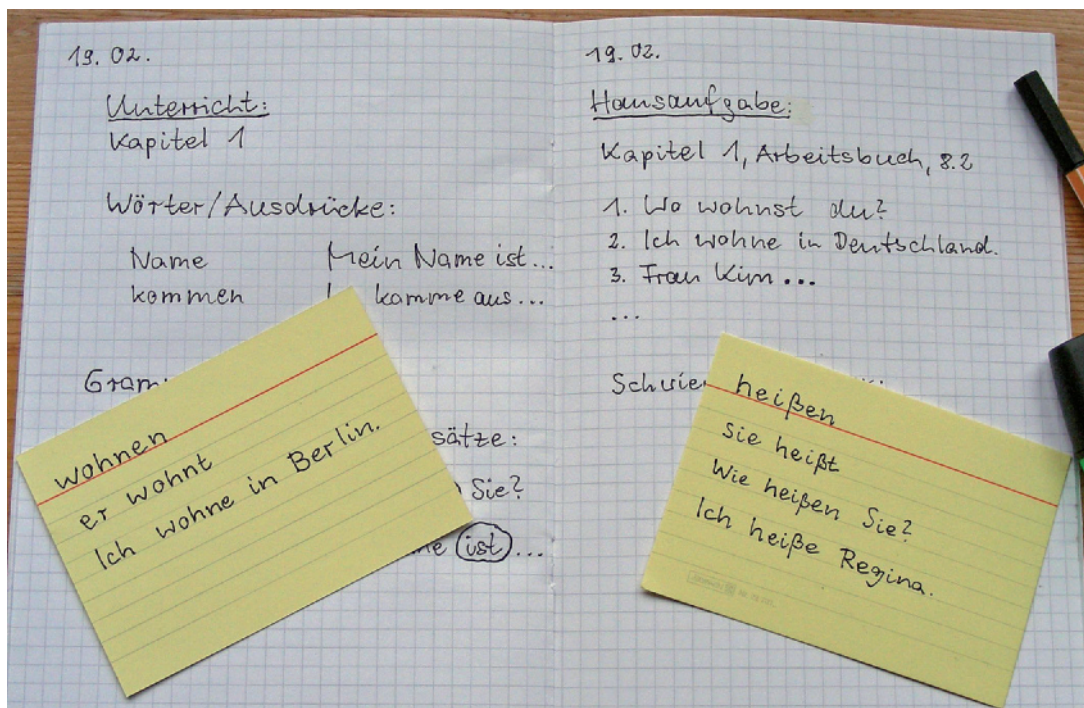 19. 02.
Unterricht:
Kapitel 1
Wörter/Ausdrücke:
Name Mein Name ist...
kommen komme aus...
Gram
sätze:
Sie?
ist ...
wohnen
er wohnt
Ich wohne in Berlin.
19. 02.
Hausaufgabe:
Kapitel 1, Arbeitsbuch, S.2
1. Wo wohnst du?
2. Ich wohne in Deutschland.
3. Frau Kim ...
...
Schwie
heißen
sie heißt
Wie heißen Sie?
Ich heiße Regina.